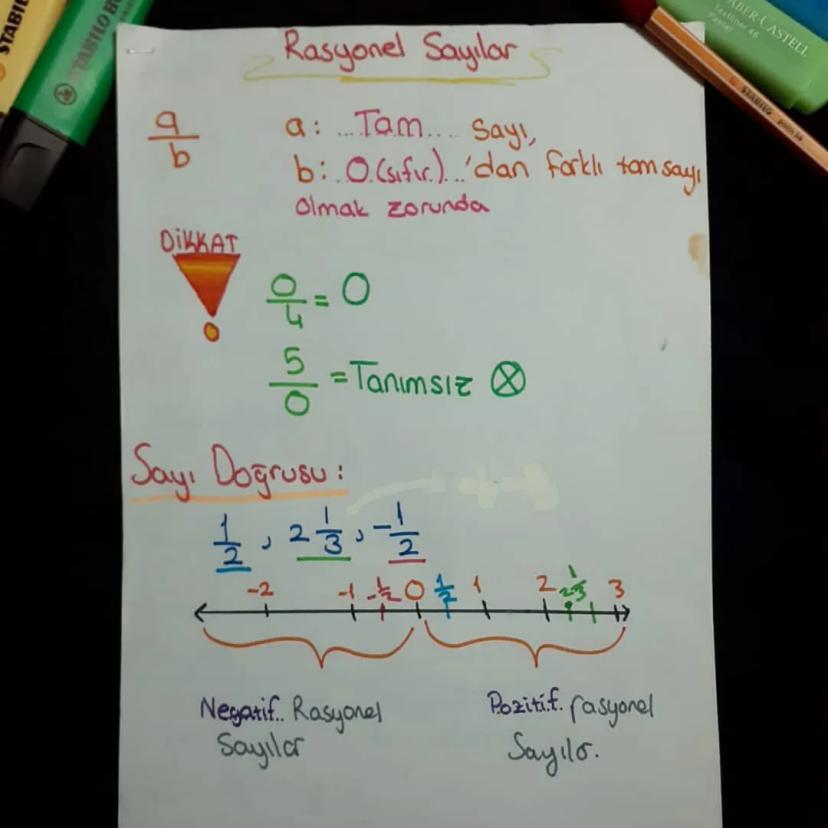 Rasyonel Sayılar
a/b
a: ...Tam.... sayı,
b: .0.(sıfır.)..'dan farklı tam sayı
olmak zorunda
DİKKAT
0/4 = 0
5/0 = Tanımsız ⊗
Sayı Doğrusu:
1/2, 2 1/3, -1/2
-2 -1 -1/2 0 1/2 1 2 2 1/3 3
Negatif.. Rasyonel Pozitif. rasyonel
Sayılar Sayılar.
STABILO BO
STABI
FABER-CASTELL
Textliner 46
Pastel
STABILO